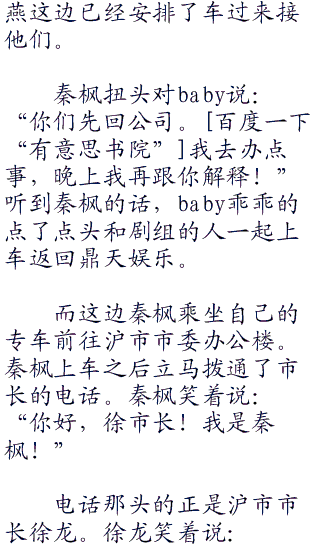 燕这边已经安排了车过来接
他们。
秦枫扭头对baby说：
“你们先回公司。[百度一下
“有意思书院”]我去办点
事，晚上我再跟你解释！”
听到秦枫的话，baby乖乖的
点了点头和剧组的人一起上
车返回鼎天娱乐。
而这边秦枫乘坐自己的
专车前往沪市市委办公楼。
秦枫上车之后立马拨通了市
长的电话。秦枫笑着说：
“你好，徐市长！我是秦
枫！”
电话那头的正是沪市市
长徐龙。徐龙笑着说：